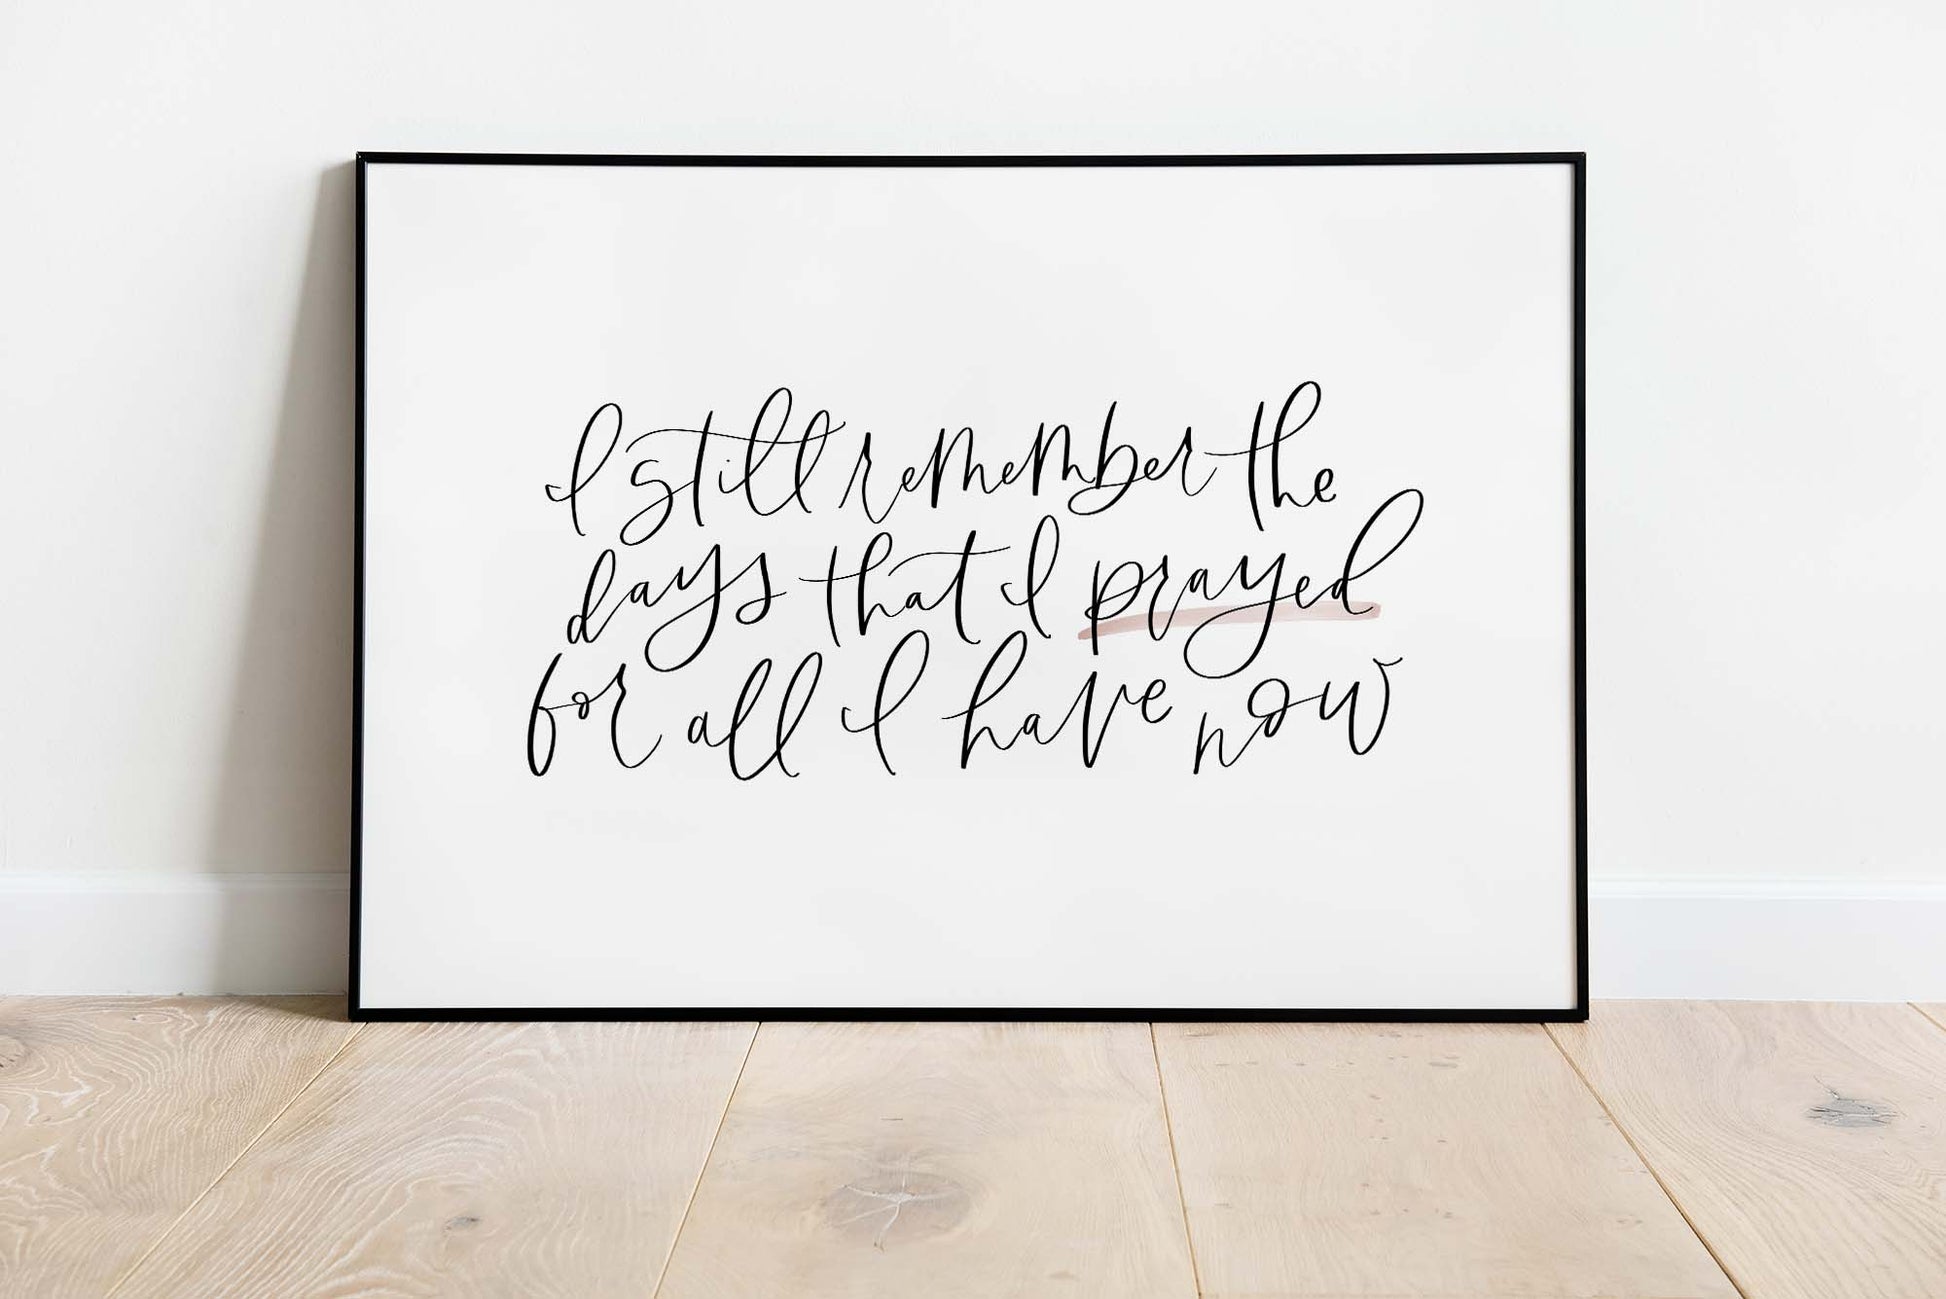 I still remember the
days that I prayed
for all I have now